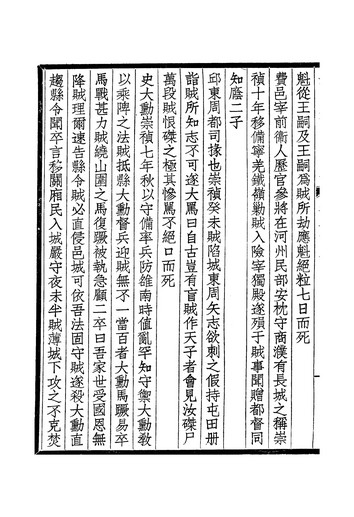 魁從王嗣及王嗣爲賊所劫應魁絕粒七日而死
費邑宰前衞人歷官參將在河州民部安枕守商濮有長城之稱崇
禎十年移備寧羌鐵嶺勦賊入險宰獨殿遂殞于賊事聞贈都督同
知廕二子
邱東周都司掾也崇禎癸未賊陷城東周矢志欲刺之假持屯田册
詣賊所知志不可遂大罵曰自古豈有盲賊作天子者會見汝磔尸
萬段賊恨磔之極其慘罵不絕口而死
史大勳崇禎七年秋以守備率兵防雒南時値亂罕知守禦大勳教
以乘陴之法賊抵縣大勳督兵迎賊無不一當百者大勳馬蹶易卒
馬戰甚力賊繞山圍之馬復蹶被執急顧二卒曰吾家世受國恩無
降賊理爾速告縣令賊必直侵邑城可依吾法固守賊遂殺大勳直
趨縣令聞卒言移關廂民入城嚴守夜未半賊薄城下攻之不克焚